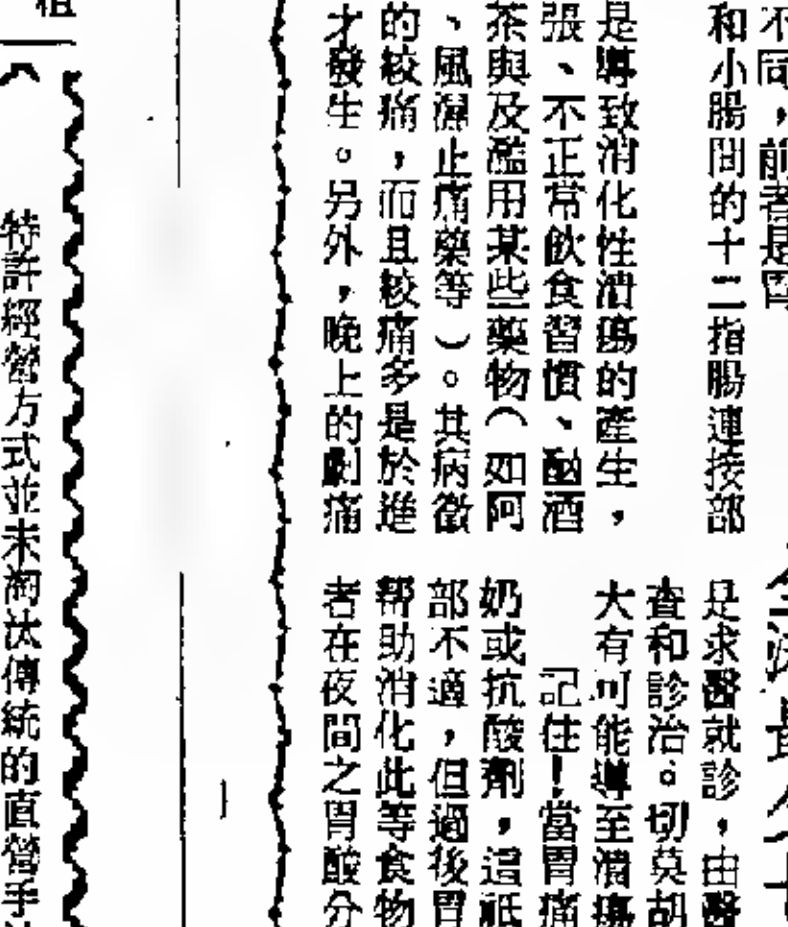 不同，前者是胃
和小腸間的十二指腸連接部
是導致消化性潰瘍的產生，
張、不正常飲食習慣、酗酒
茶與及濫用某些藥物（如阿
、風濕止痛藥等）。其病徵
的絞痛，而且絞痛多是於進
才發生。另外，晚上的劇痛
是求醫就診，由醫
查和診治。切莫胡
大有可能導至潰瘍
記住！當胃痛
奶或抗酸劑，這祇
部不適，但過後胃
幫助消化此等食物
者在夜間之胃酸分
租
特許經營方式並未淘汰傳統的直營手